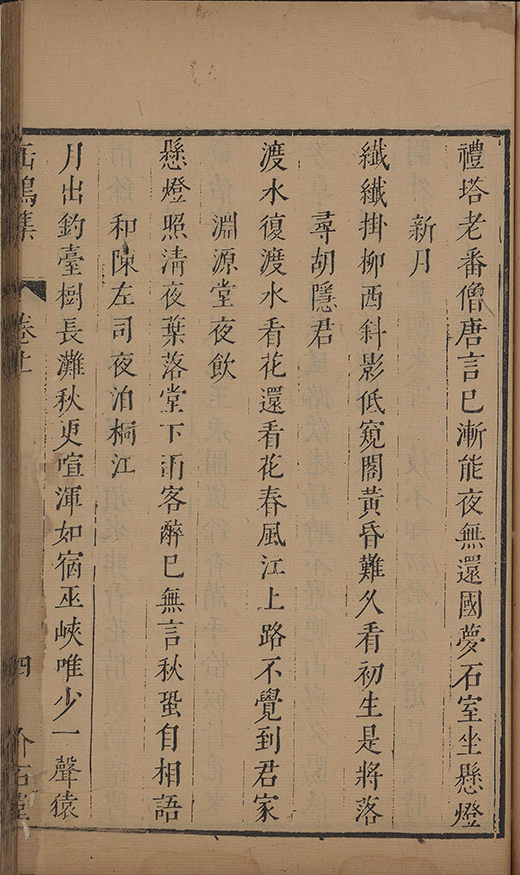 禮塔老番僧唐言已漸能夜無還國夢石室坐懸燈
新月
纖纖掛柳西斜影低窺閣黃昏難久看初生是將落
尋胡隱君
渡水復渡水看花還看花春風江上路不覺到君家
淵源堂夜飲
懸燈照清夜葉落堂下雨客醉已無言秋蛩自相語
和陳左司夜泊桐江
月出釣臺樹長灘秋更喧渾如宿巫峽唯少一聲猿
鳴集 卷 四